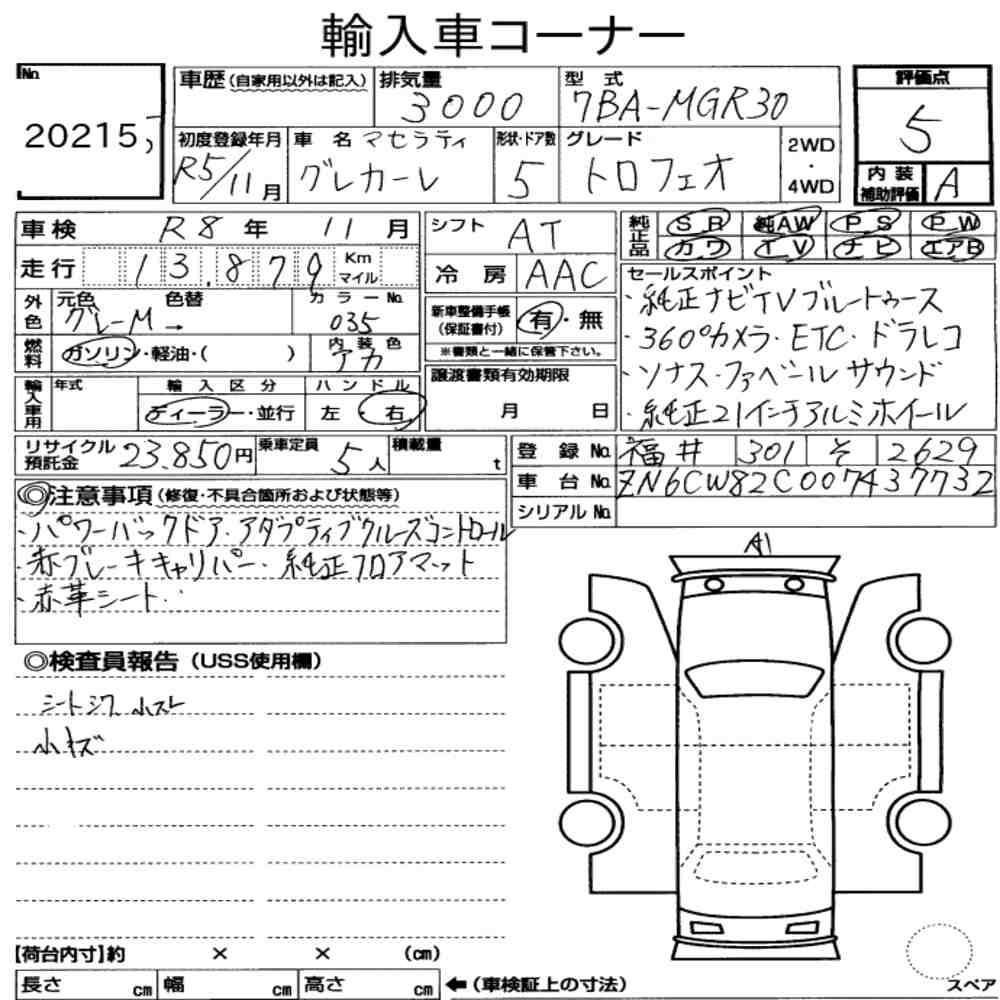 輸入車コーナー
No.
20215
車歴 (自家用以外は記入) 排気量 型式 評価点
3000 7BA-MGR30 5
初度登録年月 車名 マセラティ 形状・ドア数 グレード 2WD・4WD
R5/11月 グレカーレ 5 トロフェオ
内装補助評価 A
車検 R8年 11月 シフト AT
純正品 SR 純AW PS PW
カワ TV ナビ エアB
走行 13,879 Km マイル 冷房 AAC
セールスポイント
・純正ナビTVブルートゥース
・360°カメラ・ETC・ドラレコ
・ソナス・ファベールサウンド
・純正21インチアルミホイール
外色 元色 色替 カラーNo.
グレーM → 035
新車整備手帳(保証書付) 有・無
※書類と一緒に保管下さい。
燃料 ガソリン・軽油・( ) 内装色 アカ
譲渡書類有効期限
月 日
輸入車用 年式 輸入区分 ハンドル
ディーラー・並行 左・右
リサイクル預託金 23,850円 乗車定員 5人 積載量 t
登録No. 福井 301 そ 2629
車台No. ZN6CW82C007437732
シリアルNo.
◎注意事項 (修復・不具合箇所および状態等)
・パワーバックドア・アダプティブクルーズコントロール
・赤ブレーキキャリパー・純正フロアマット
・赤革シート
A1
◎検査員報告 (USS使用欄)
シートシワ 小スレ
小キズ
【荷台内寸】約 × × (cm)
長さ cm 幅 cm 高さ cm ←(車検証上の寸法)
スペア